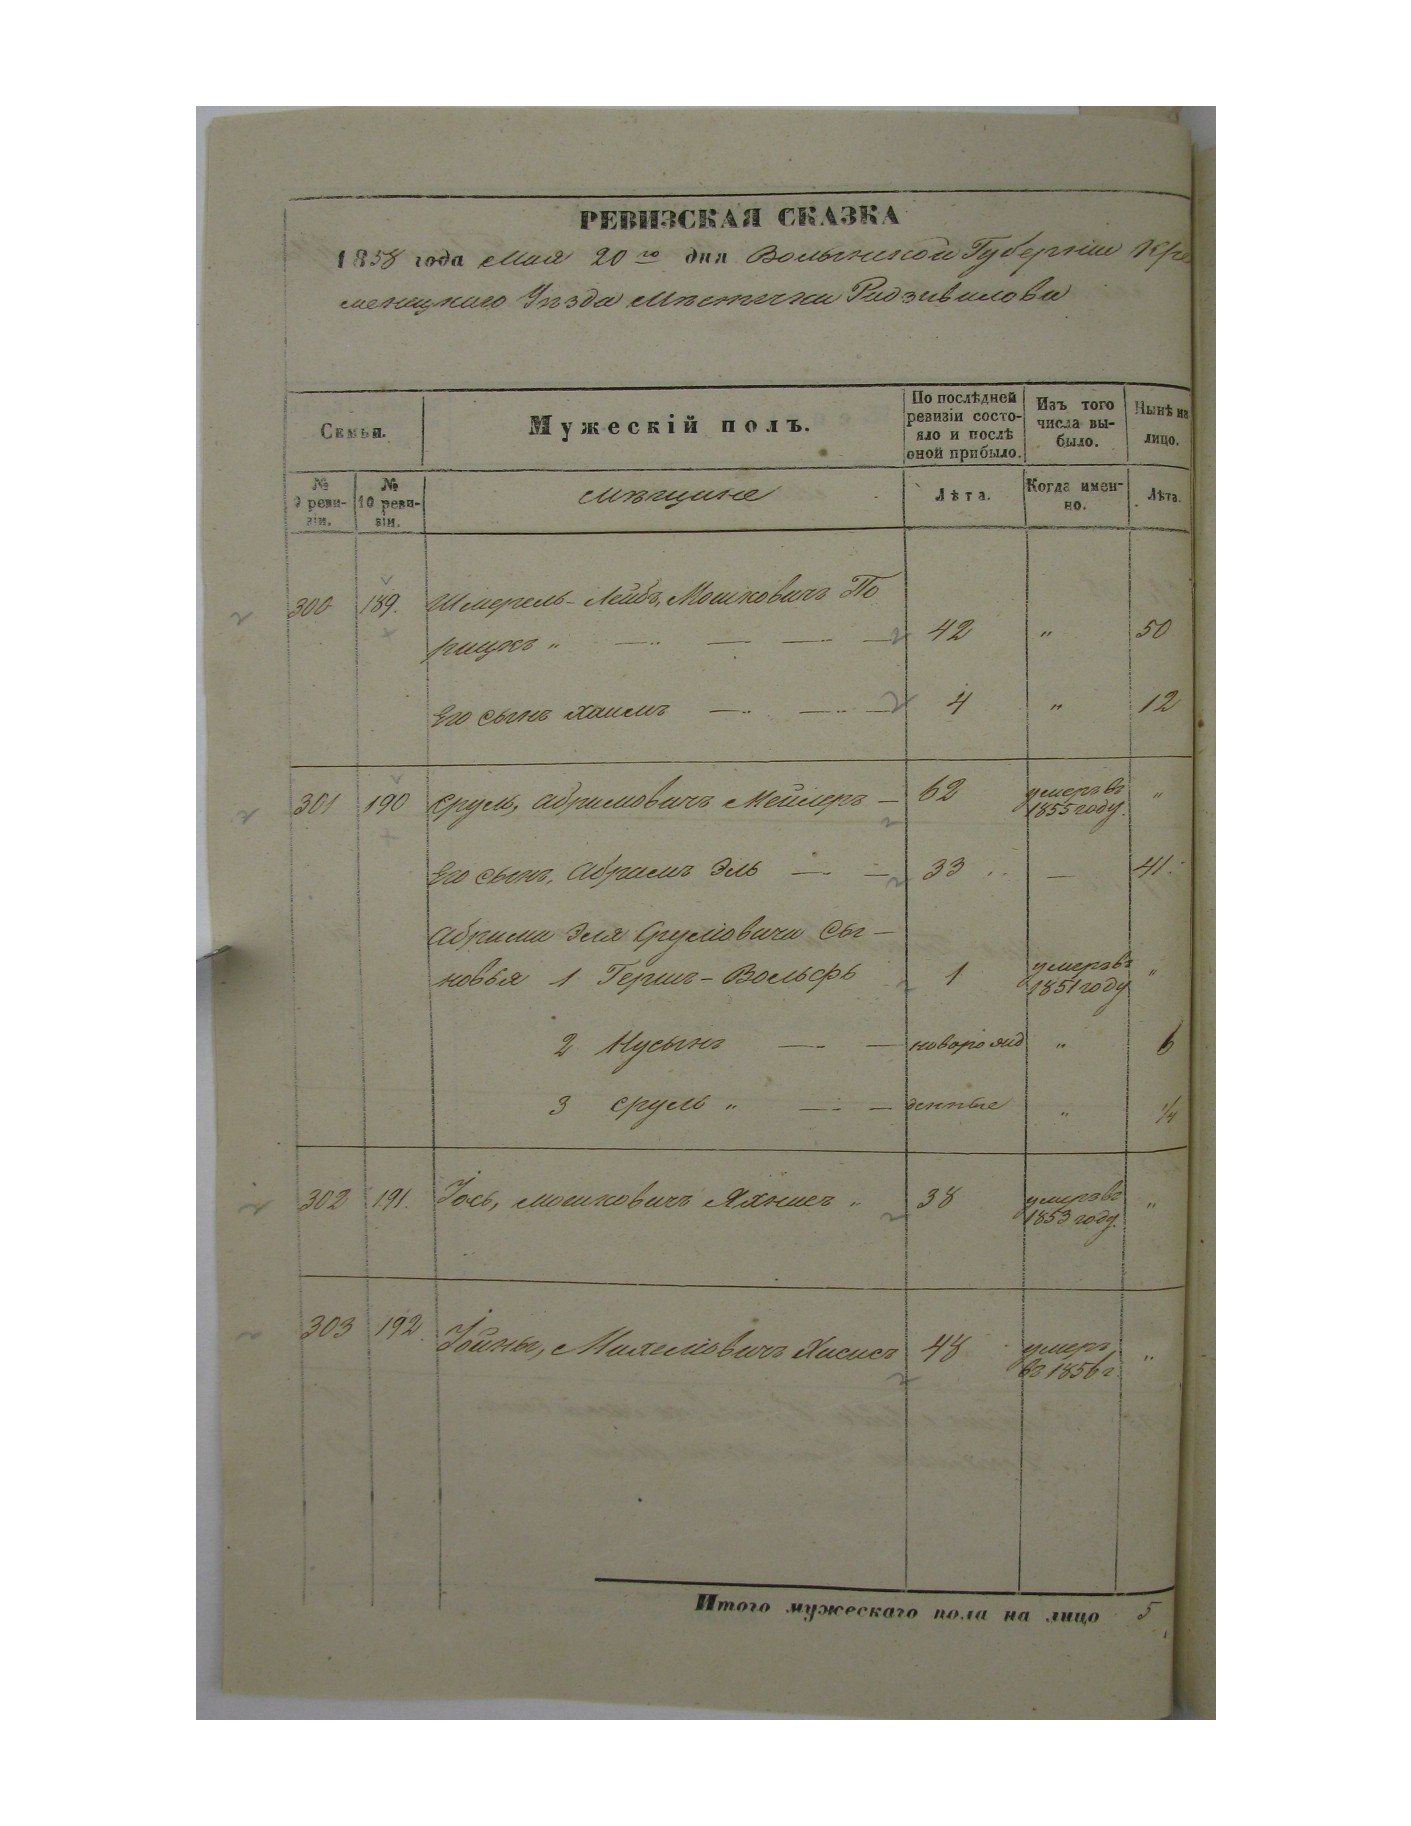 РЕВИЗСКАЯ СКАЗКА
1858 года Мая 20го дня Волынской Губерніи Кре
менецкаго Уѣзда Мѣстечка Радзивилова
Семьи.
Мужескій полъ.
По послѣдней ревизіи состо-
яло и послѣ оной прибыло.
Изъ того числа вы-
было.
Нынѣ на лицо.
№ 9 реви-
зіи.
№ 10 реви-
зіи.
Мѣщане
Лѣта.
Когда имен-
но.
Лѣта.
300 189. Шмерель-Лейбъ, Мошковичъ По
рицкъ „ 42 „ 50
Его сынъ Хаимъ 4 „ 12
301 190 Сруль, Абрамовичъ Мейлеръ 62 умеръ въ 1855 году. „
Его сынъ, Абрамъ Эль 33 — 41.
Абрама Эля Срулёвича Сы-
новья 1 Гершъ-Вольфъ 1 умеръ въ 1851 году „
2 Нусынъ новорожд „ 6
3 Сруль „ денные „ 1/4
302 191. Іось, Мошковичъ Яхнисъ „ 38 умеръ въ 1853 году. „
303 192. Іойны, Махелёвичъ Хасисъ 48 умеръ въ 1856 г. „
Итого мужескаго пола на лицо 5